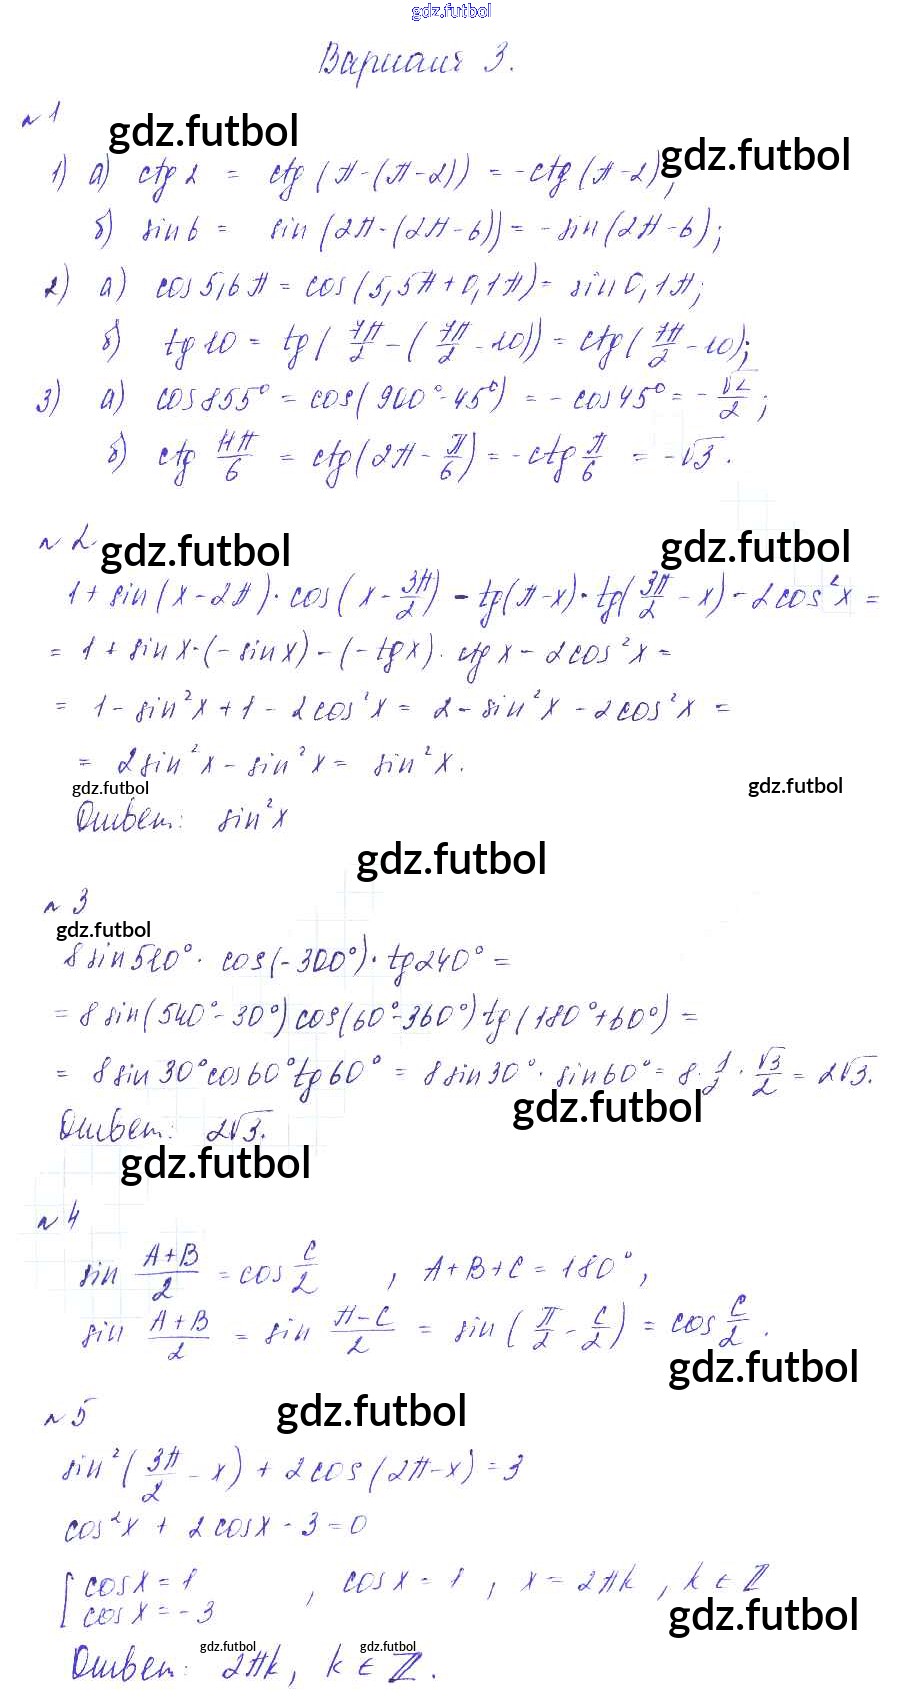 gdz.futbol
Вариант 3.
№1
gdz.futbol
gdz.futbol
1) а) ctg 2 = ctg (π-(π-2)) = -ctg (π-2);
б) sin 6 = sin (2π-(2π-6)) = -sin (2π-6);
2) а) cos 5,6π = cos (5,5π+0,1π) = sin 0,1π;
б) tg 10 = tg (7π/2 - (7π/2 - 10)) = ctg (7π/2 - 10);
3) а) cos 855° = cos (900°-45°) = -cos 45° = -√2/2;
б) ctg 11π/6 = ctg (2π - π/6) = -ctg π/6 = -√3.
№2
gdz.futbol
gdz.futbol
1 + sin (x-2π)·cos (x - 3π/2) - tg(π-x)·tg(3π/2 - x) - 2cos²x =
= 1 + sin x·(-sin x) - (-tg x)·ctg x - 2cos²x =
= 1 - sin²x + 1 - 2cos²x = 2 - sin²x - 2cos²x =
= 2sin²x - sin²x = sin²x.
gdz.futbol
gdz.futbol
Ответ: sin²x
gdz.futbol
№3
gdz.futbol
8 sin 510°·cos (-300°)·tg 240° =
= 8 sin (540°-30°) cos (60°-360°) tg (180°+60°) =
= 8 sin 30° cos 60° tg 60° = 8 sin 30°·sin 60° = 8·1/2·√3/2 = 2√3.
gdz.futbol
Ответ: 2√3.
gdz.futbol
№4
sin (A+B)/2 = cos C/2, A+B+C = 180°,
sin (A+B)/2 = sin (π-C)/2 = sin (π/2 - C/2) = cos C/2.
gdz.futbol
№5
gdz.futbol
sin² (3π/2 - x) + 2cos (2π-x) = 3
cos²x + 2cos x - 3 = 0
[ cos x = 1
cos x = -3 , cos x = 1, x = 2πk, k ∈ Z
gdz.futbol
gdz.futbol
gdz.futbol
Ответ: 2πk, k ∈ Z.